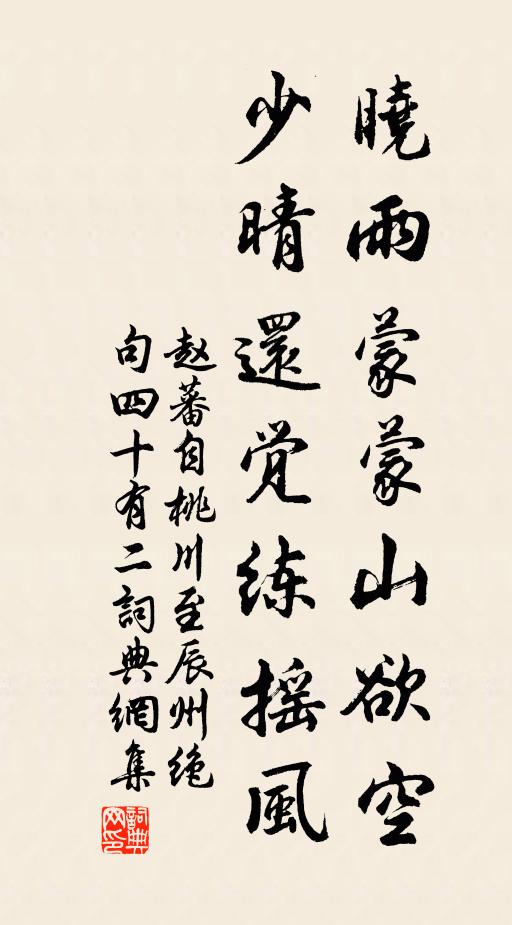 曉雨蒙蒙山欲空
少晴還觉练摇風
赵蕃自桃川至辰州绝
句四十有二詞典網集
詞典
网印